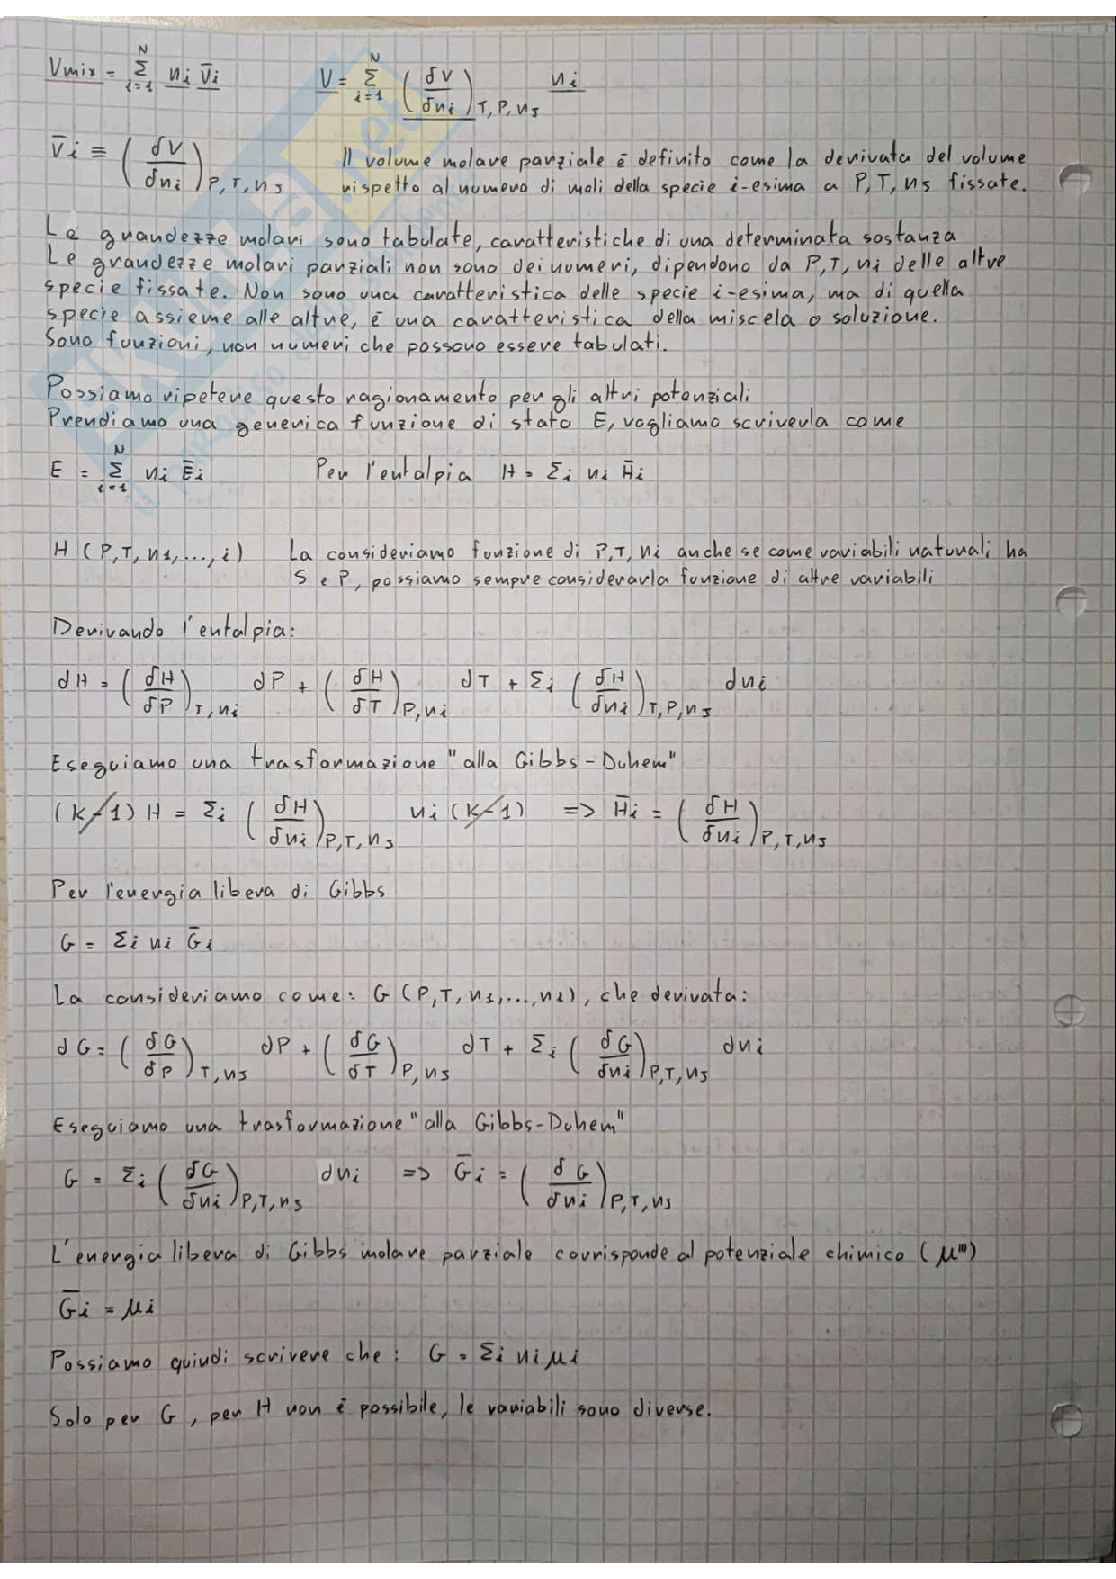 Vmix = Σ_{i=1}^{N} ni V̄i    V = Σ_{i=1}^{N} (δV/δni)_{T,P,nJ} ni
V̄i ≡ (δV/δni)_{P,T,nJ}    Il volume molare parziale è definito come la derivata del volume
rispetto al numero di moli della specie i-esima a P,T,nJ fissate.
Le grandezze molari sono tabulate, caratteristiche di una determinata sostanza
Le grandezze molari parziali non sono dei numeri, dipendono da P,T,ni delle altre
specie fissate. Non sono una caratteristica delle specie i-esima, ma di quella
specie assieme alle altre, è una caratteristica della miscela o soluzione.
Sono funzioni, non numeri che possono essere tabulati.
Possiamo ripetere questo ragionamento per gli altri potenziali
Prendiamo una generica funzione di stato E, vogliamo scriverla come
E = Σ_{i=1}^{N} ni Ēi    Per l'entalpia H = Σi ni H̄i
H (P,T,n1,...,i)    La consideriamo funzione di P,T,ni anche se come variabili naturali ha
S e P, possiamo sempre considerarla funzione di altre variabili
Derivando l'entalpia:
dH = (δH/δP)_{T,ni} dP + (δH/δT)_{P,ni} dT + Σi (δH/δni)_{T,P,nJ} dni
Eseguiamo una trasformazione "alla Gibbs-Duhem"
(K-1) H = Σi (δH/δni)_{P,T,nJ} ni (K-1) => H̄i = (δH/δni)_{P,T,nJ}
Per l'energia libera di Gibbs
G = Σi ni Ḡi
La consideriamo come: G (P,T,n1,...,ni), che derivata:
dG = (δG/δP)_{T,nJ} dP + (δG/δT)_{P,nJ} dT + Σi (δG/δni)_{P,T,nJ} dni
Eseguiamo una trasformazione "alla Gibbs-Duhem"
G = Σi (δG/δni)_{P,T,nJ} dni => Ḡi = (δG/δni)_{P,T,nJ}
L'energia libera di Gibbs molare parziale corrisponde al potenziale chimico (μ")
Ḡi = μi
Possiamo quindi scrivere che: G = Σi ni μi
Solo per G, per H non è possibile, le variabili sono diverse.